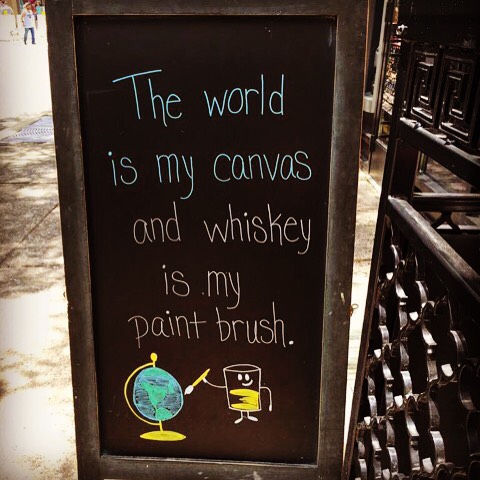 The world
is my canvas
and whiskey
is my
paint brush.